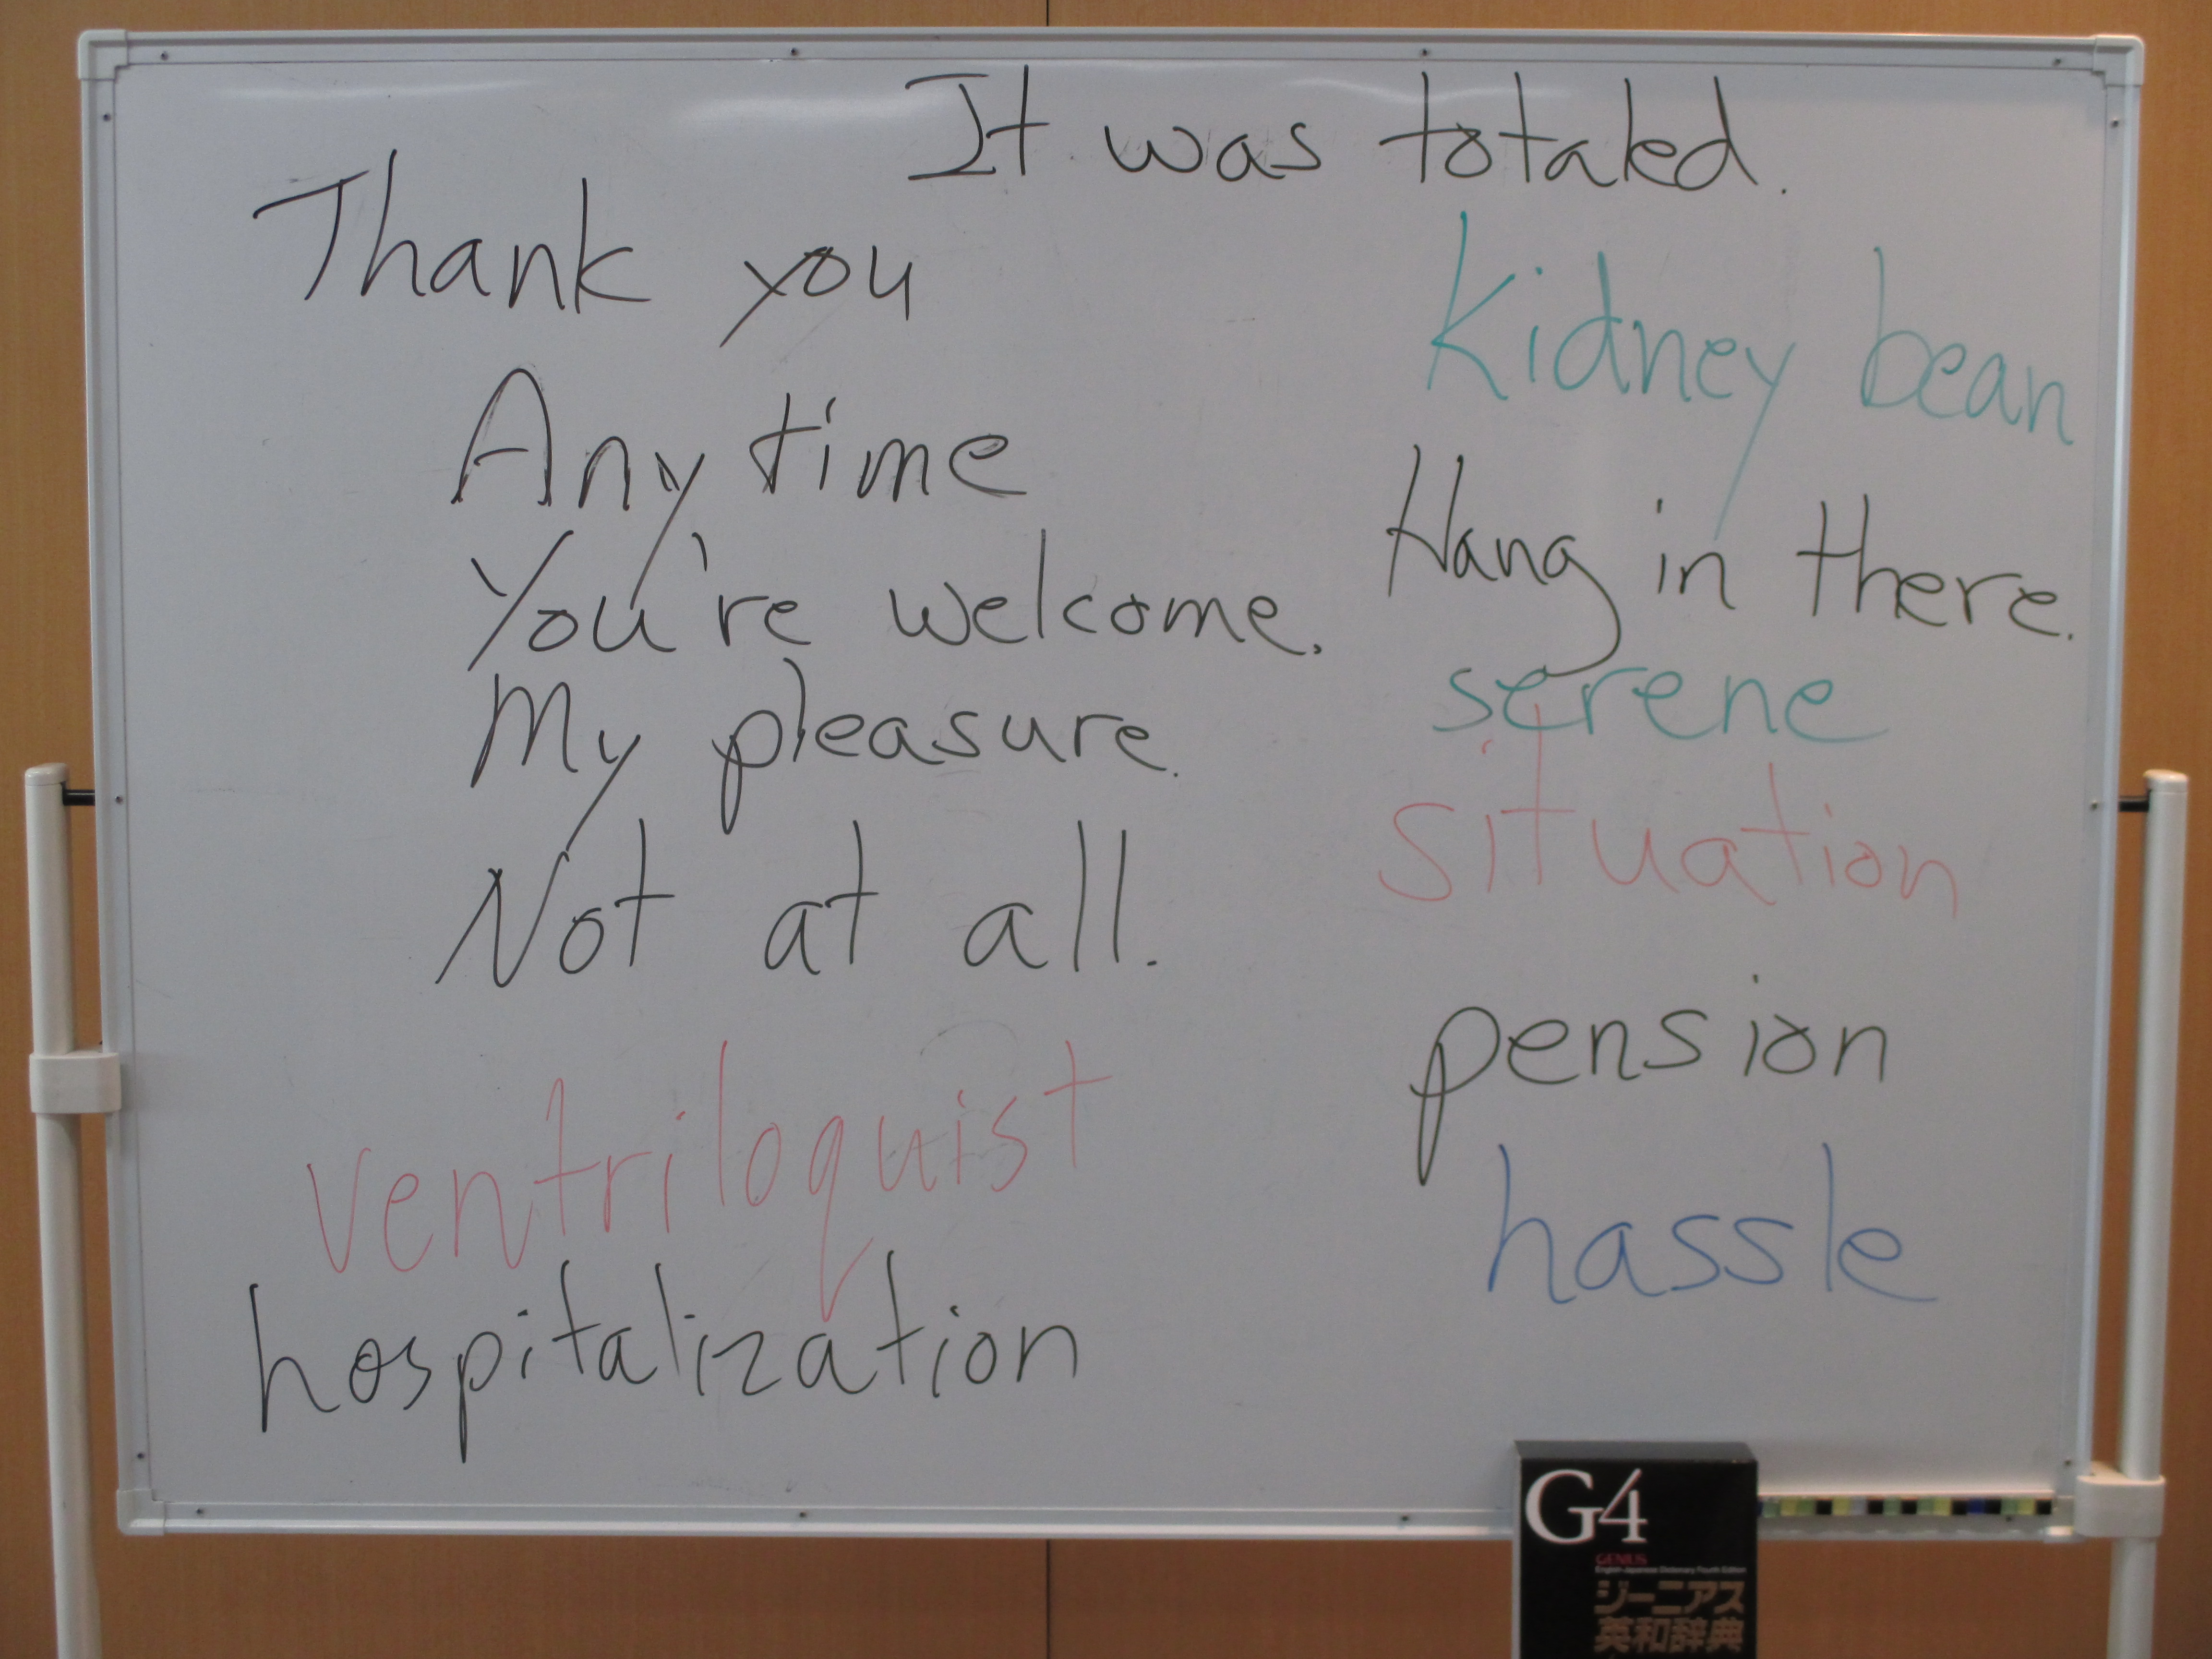 It was totaled.
Thank you
Any time
You're welcome.
My pleasure.
Not at all.
ventriloquist
hospitalization
kidney bean
Hang in there.
serene
situation
pension
hassle
G4
GENIUS
English-Japanese Dictionary Fourth Edition
ジーニアス
英和辞典